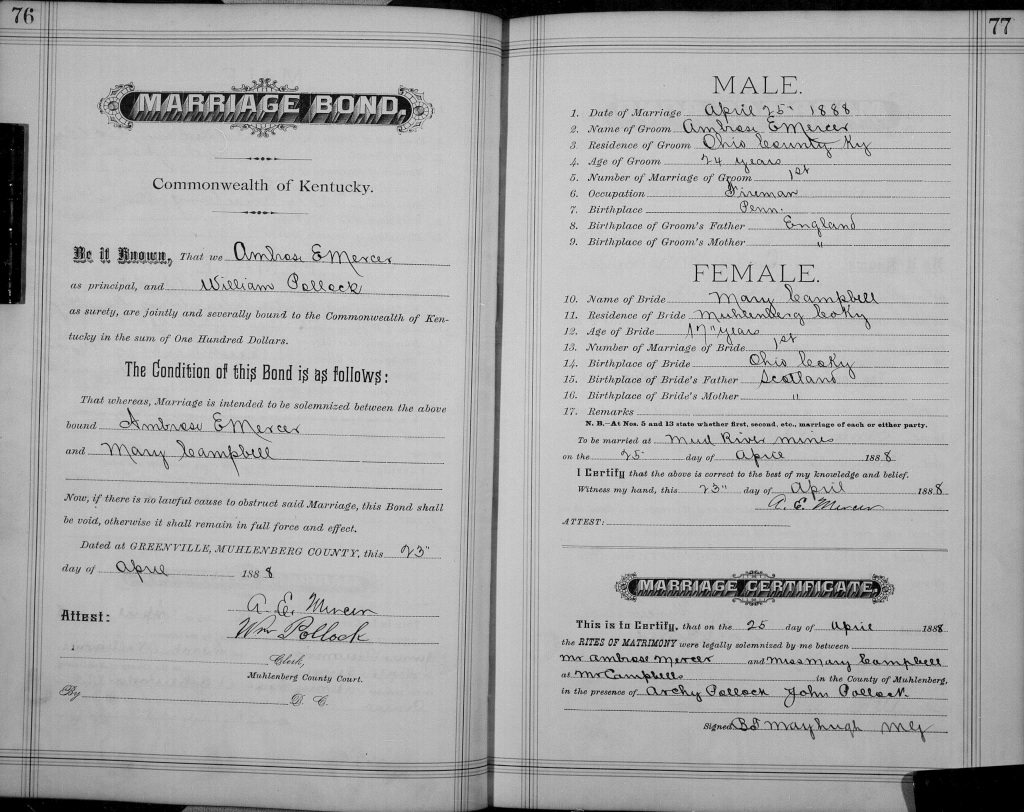 76
MARRIAGE BOND,
Commonwealth of Kentucky.
Be it Known, That we Ambrose E Mercer
as principal, and William Pollock
as surety, are jointly and severally bound to the Commonwealth of Ken-
tucky in the sum of One Hundred Dollars.
The Condition of this Bond is as follows:
That whereas, Marriage is intended to be solemnized between the above
bound Ambrose E Mercer
and Mary Campbell
Now, if there is no lawful cause to obstruct said Marriage, this Bond shall
be void, otherwise it shall remain in full force and effect.
Dated at GREENVILLE, MUHLENBERG COUNTY, this 23"
day of April 1888
Attest: A. E. Mercer
Wm Pollock
Clerk,
Muhlenberg County Court.
By D. C.
77
MALE.
1. Date of Marriage April 25" 1888
2. Name of Groom Ambrose E Mercer
3. Residence of Groom Ohio County Ky
4. Age of Groom 24 years
5. Number of Marriage of Groom 1st
6. Occupation Fireman
7. Birthplace Penn.
8. Birthplace of Groom's Father England
9. Birthplace of Groom's Mother "
FEMALE.
10. Name of Bride Mary Campbell
11. Residence of Bride Muhlenberg Co Ky
12. Age of Bride 17" years
13. Number of Marriage of Bride 1st
14. Birthplace of Bride Ohio Co Ky
15. Birthplace of Bride's Father Scotland
16. Birthplace of Bride's Mother "
17. Remarks
N. B.—At Nos. 5 and 13 state whether first, second, etc., marriage of each or either party.
To be married at Mud River mines
on the 25 day of April 1888
I Certify that the above is correct to the best of my knowledge and belief.
Witness my hand, this 23" day of April 1888
A. E. Mercer
ATTEST:
MARRIAGE CERTIFICATE,
This is to Certify, that on the 25 day of April 1888
the RITES OF MATRIMONY were legally solemnized by me between
Mr Ambrose Mercer and Miss Mary Campbell
at Mr Campbells in the County of Muhlenberg,
in the presence of Archy Pollock John Pollock
Signed, Mayhugh